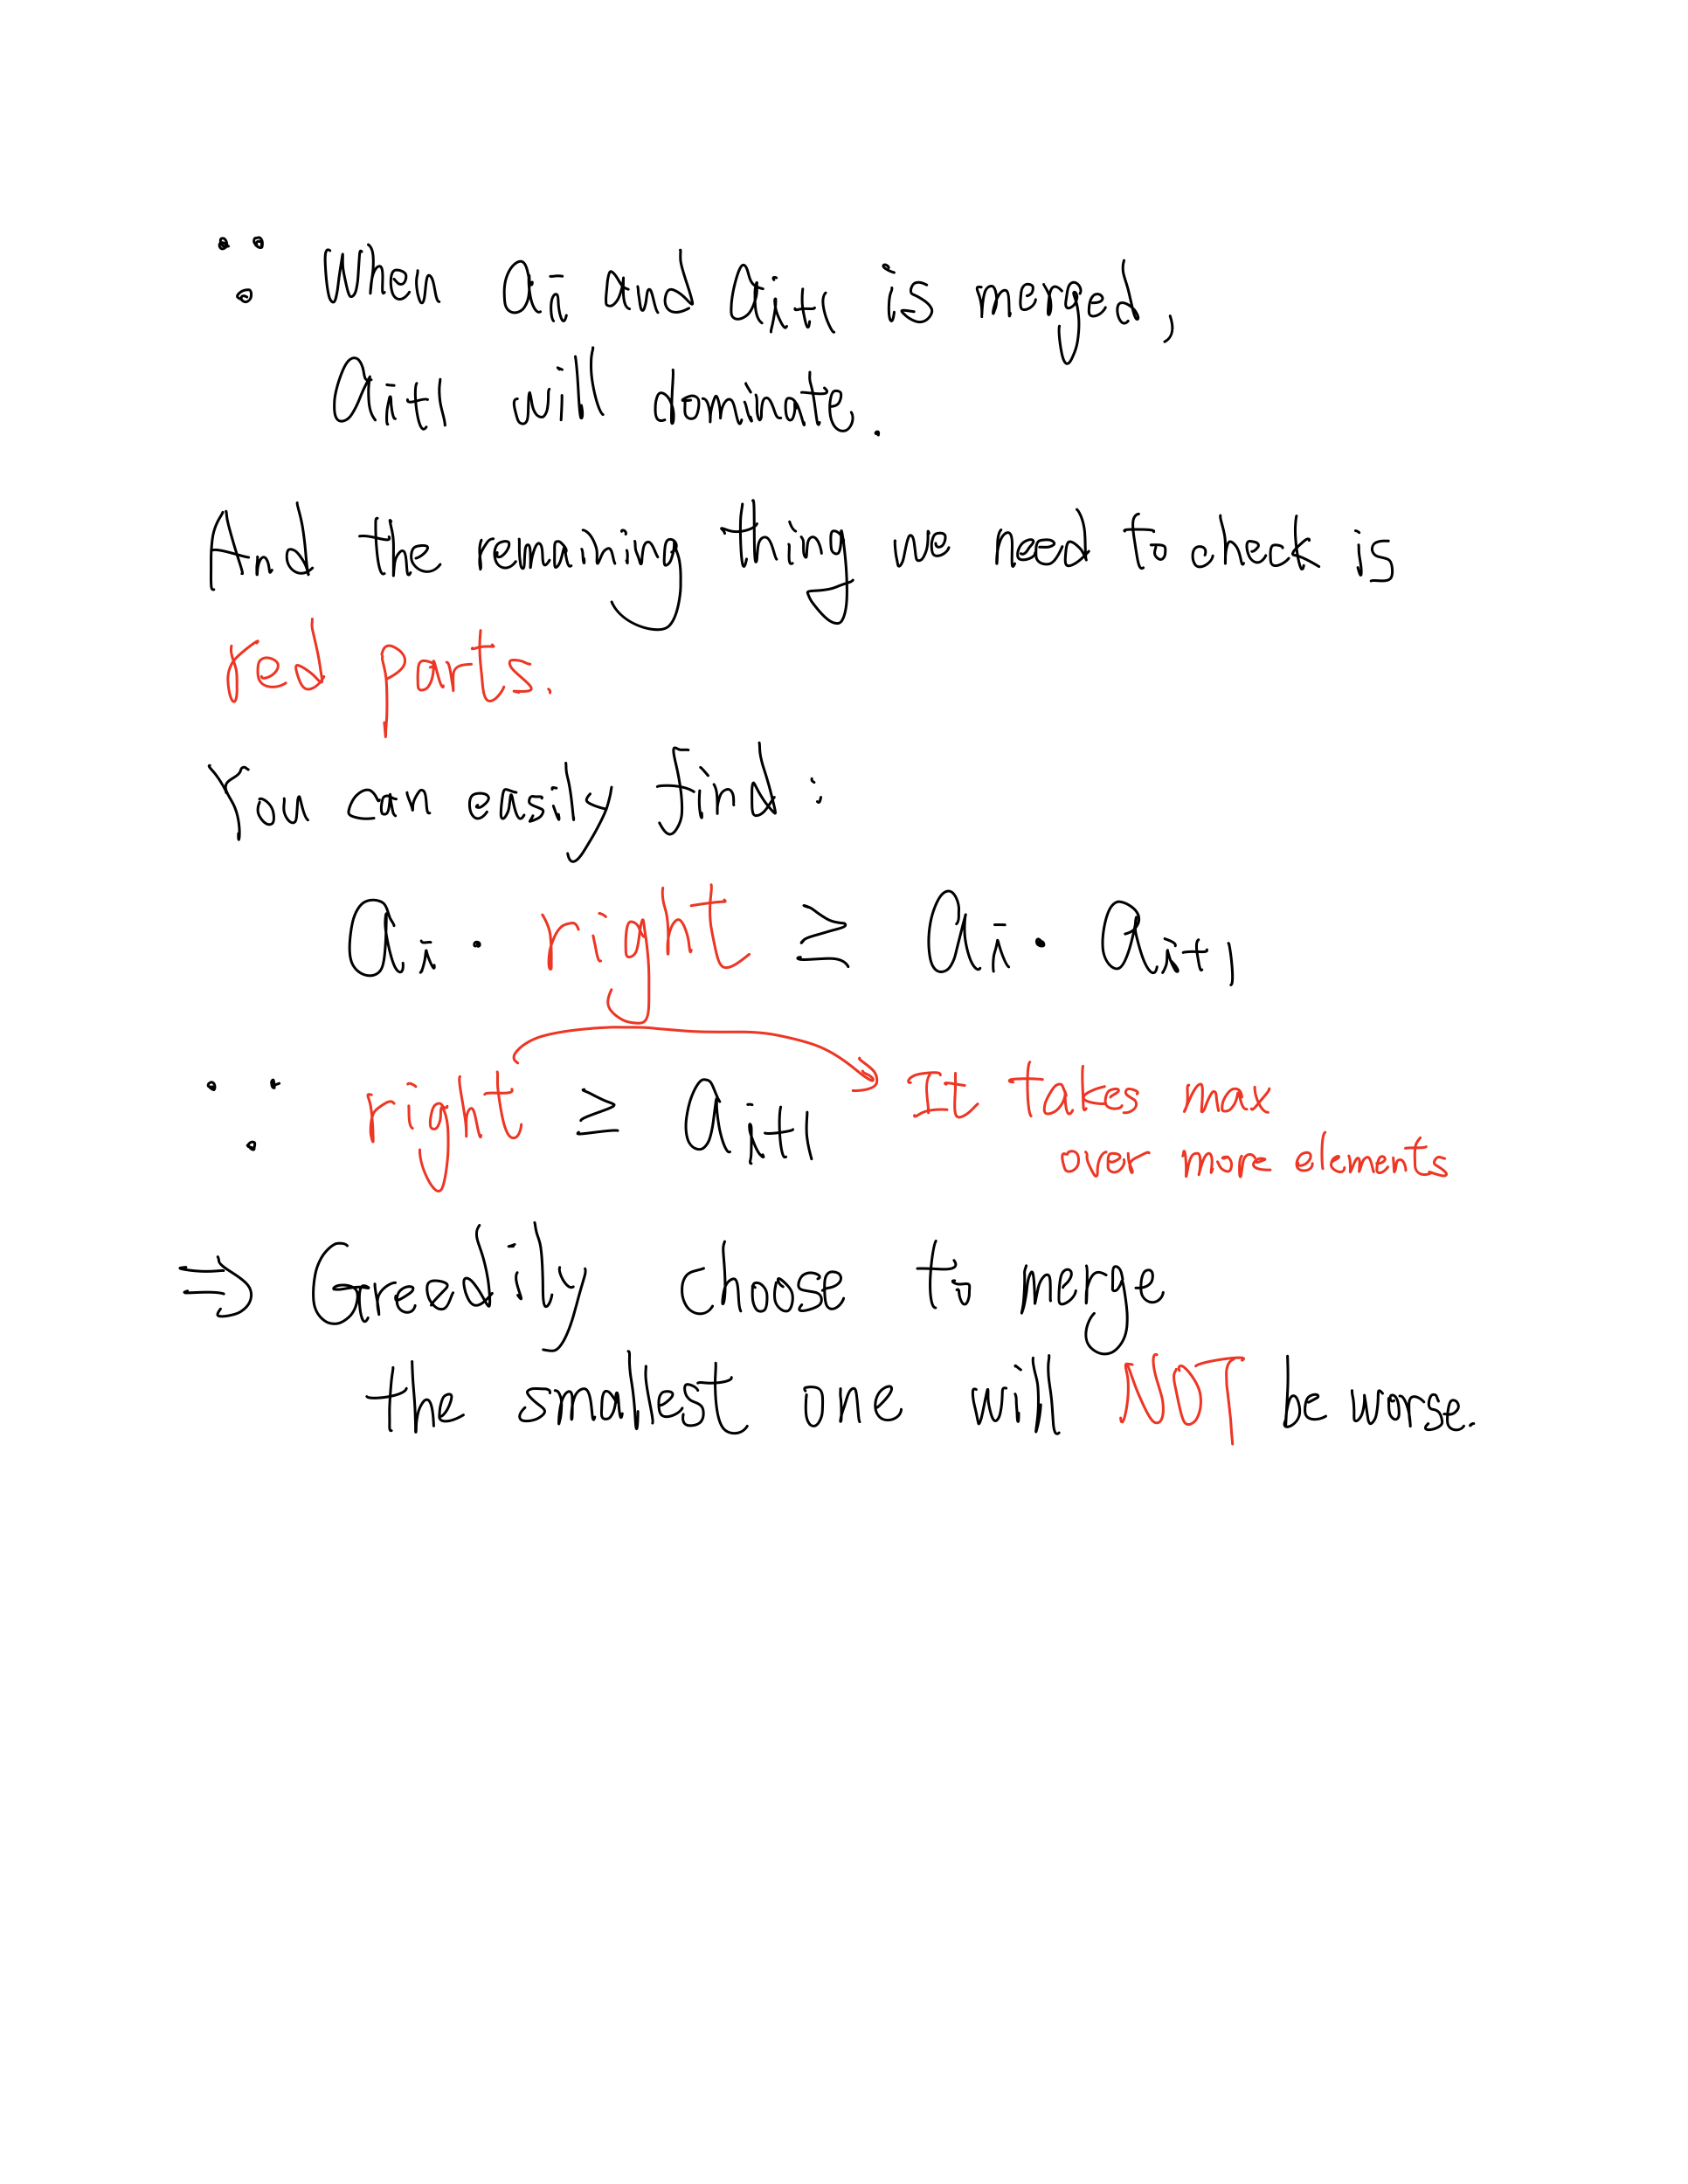 ∵ When aᵢ and aᵢ₊₁ is merged,
aᵢ₊₁ will dominate.
And the remaining thing we need to check is
red parts.
You can easily find:
aᵢ · right ≥ aᵢ · aᵢ₊₁
∵ right ≥ aᵢ₊₁ It takes max
over more elements
⇒ Greedily choose to merge
the smallest one will NOT be worse.